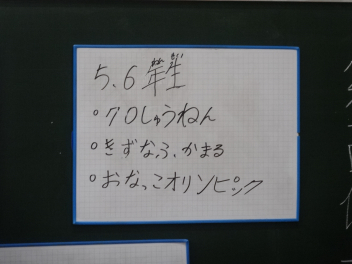 5.6年生
°70しゅうねん
°きずなふかまる
°おなっこオリンピック